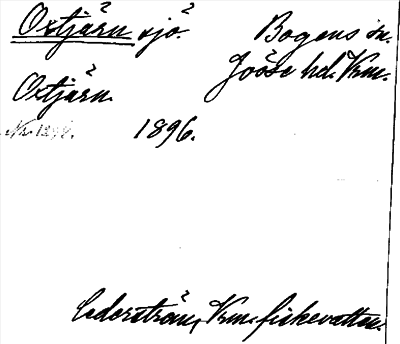 Oxtjärn sjö. Bogens sn.
Jösse hd. Vrm.
Oxtjärn.
1896.
Cederström, Vrm. fiskevatten.